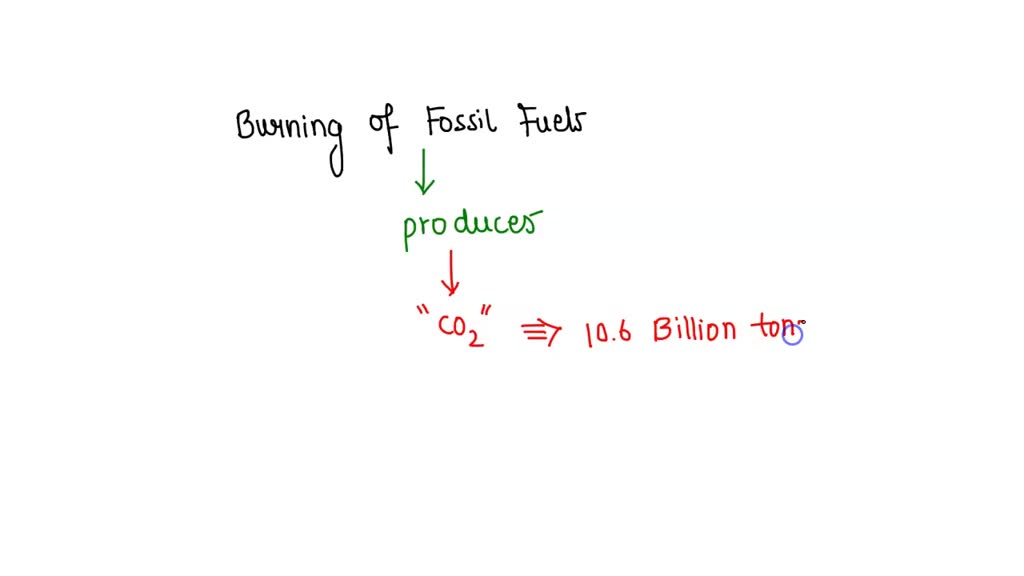 Burning of Fossil Fuels
produces
"CO₂" ⇛ 10.6 Billion ton